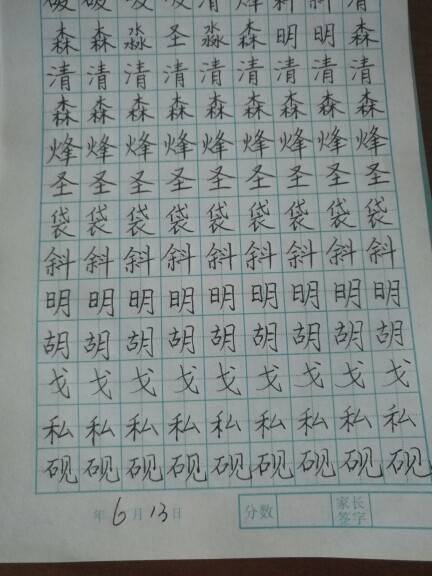 清
森森淼圣淼森明明森
清清清清清清清清清
森森森森森森森森森
烽烽烽烽烽烽烽烽烽
圣圣圣圣圣圣圣圣圣
袋袋袋袋袋袋袋袋袋
斜斜斜斜斜斜斜斜斜
明明明明明明明明明
胡胡胡胡胡胡胡胡胡
戈戈戈戈戈戈戈戈戈
私私私私私私私私私
砚砚砚砚砚砚砚砚砚
年6月13日 分数 家长签字